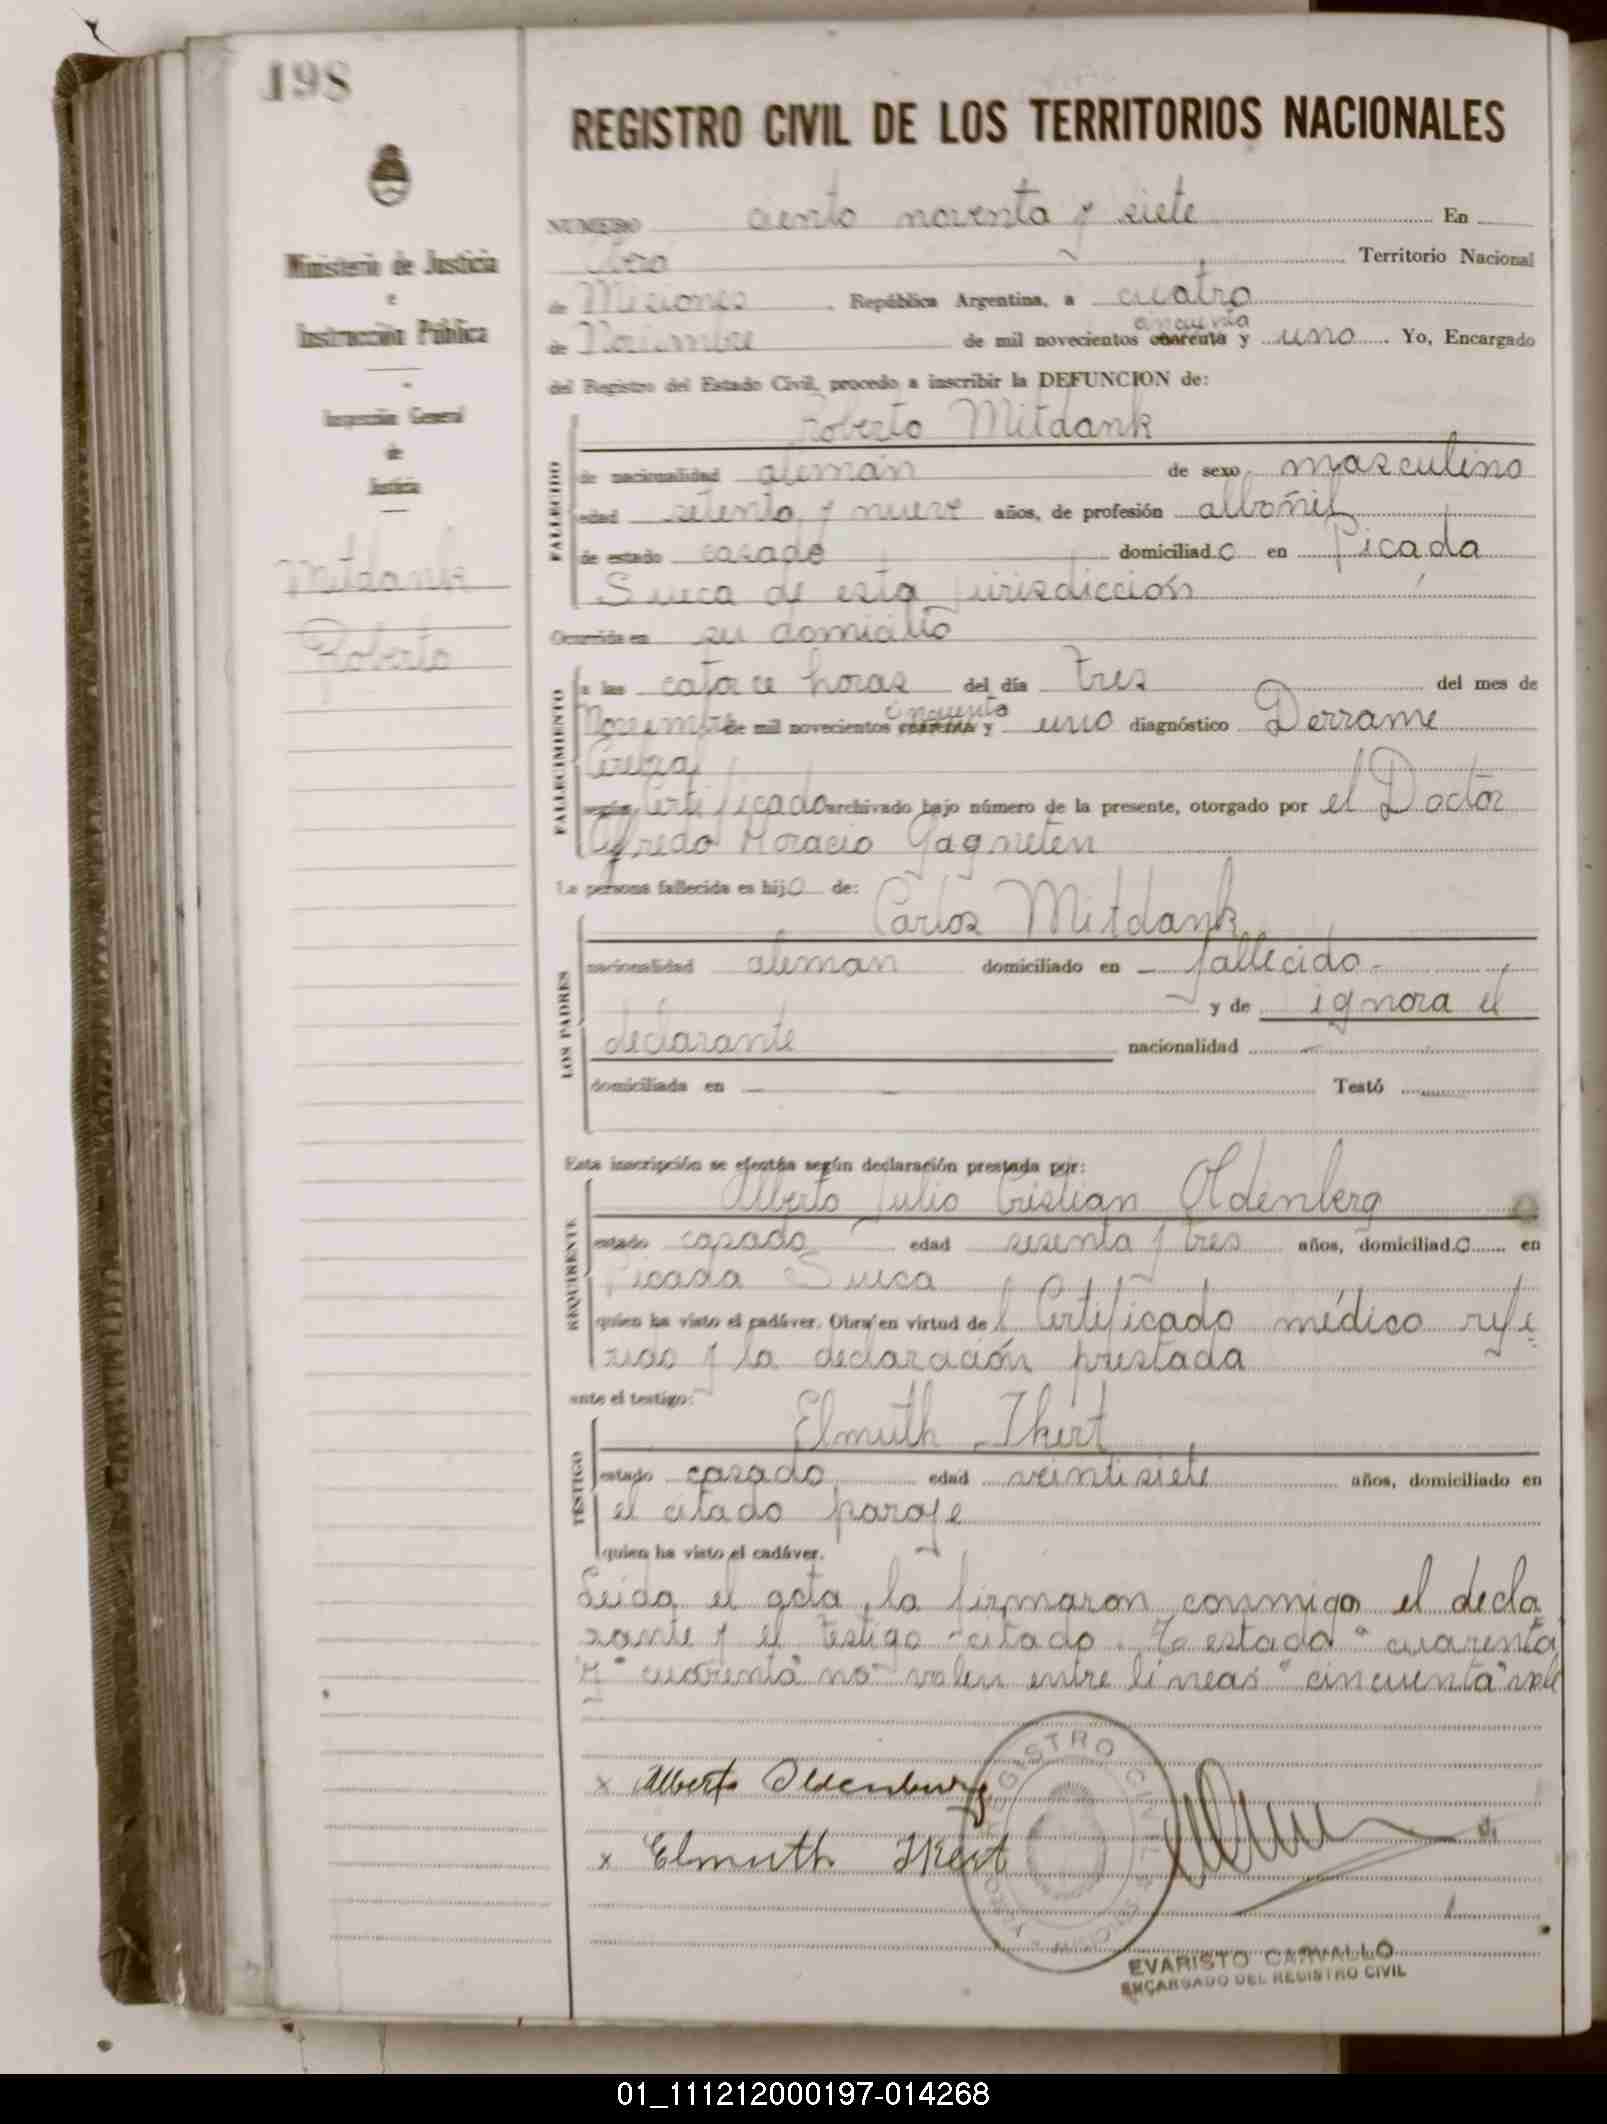 198
REGISTRO CIVIL DE LOS TERRITORIOS NACIONALES
Ministerio de Justicia
e
Instrucción Pública
Inspección General
de
Justicia
Mitdank
Roberto
NUMERO ciento noventa y siete En
Territorio Nacional
de Misiones República Argentina, a cuatro
cincuenta
de Noviembre de mil novecientos cuarenta y uno Yo, Encargado
del Registro del Estado Civil, procedo a inscribir la DEFUNCION de:
FALLECIDO
Roberto Mitdank
de nacionalidad alemán de sexo masculino
edad setenta y nueve años, de profesión albañil
de estado casado domiciliado en Picada
Sueca de esta jurisdicción
Ocurrida en su domicilio
FALLECIMIENTO
a las catorce horas del día tres del mes de
cincuenta
Noviembre de mil novecientos cuarenta y uno diagnóstico Derrame
Cerebral
según Certificado archivado bajo número de la presente, otorgado por el Doctor
Alfredo Horacio Gagneten
La persona fallecida es hijo de:
LOS PADRES
Carlos Mitdank
nacionalidad aleman domiciliado en fallecido
y de ignora el
declarante nacionalidad
domiciliada en Testó
Esta inscripción se efectúa según declaración prestada por:
REQUIRENTE
Alberto Julio Cristian Oldenberg
estado casado edad sesenta y tres años, domiciliado en
Picada Sueca
quien ha visto el cadáver. Obra en virtud del Certificado médico refe
rido y la declaración prestada
ante el testigo:
TESTIGO
Elmuth Ikert
estado casado edad veintisiete años, domiciliado en
el citado paraje
quien ha visto el cadáver.
Leida el acta, la firmaron conmigo el decla
rante y el testigo citado. To estado "cuarenta"
"cuarenta" no valen entre lineas "cincuenta" vale
x Alberto Oldenburg
x Elmuth Ikert
REGISTRO CIVIL
EVARISTO CARVALLO
ENCARGADO DEL REGISTRO CIVIL
01_111212000197-014268